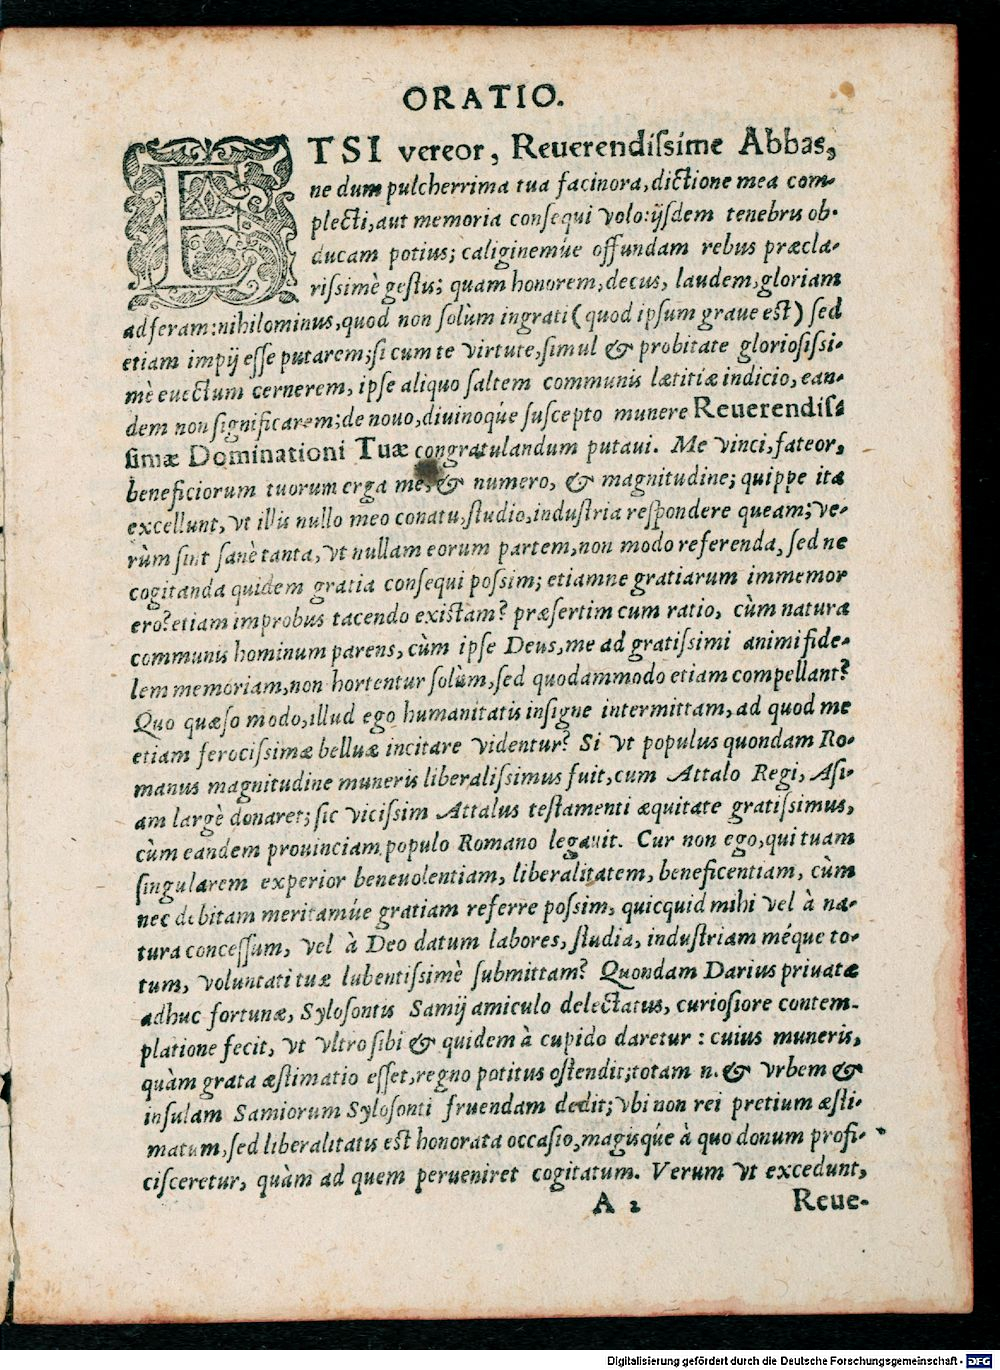 ORATIO.
ETSI vereor, Reuerendiſsime Abbas,
ne dum pulcherrima tua facinora, dictione mea com-
plecti, aut memoria conſequi volo: ijſdem tenebris ob-
ducam potius; caliginemúe offundam rebus præcla-
riſsimè geſtis; quam honorem, decus, laudem, gloriam
adferam: nihilominus, quod non ſolùm ingrati (quod ipſum graue eſt) ſed
etiam impij eſſe putarem; ſi cum te virtute, ſimul & probitate glorioſiſsi-
mè euectum cernerem, ipſe aliquo ſaltem communis lætitiæ indicio, ean-
dem non ſignificarem; de nouo, diuinoq́ue ſuſcepto munere Reuerendiſ-
ſimæ Dominationi Tuæ congratulandum putaui. Me vinci, fateor,
beneficiorum tuorum erga me, & numero, & magnitudine; quippe ita
excellunt, vt illis nullo meo conatu, ſtudio, induſtria reſpondere queam; ve-
rùm ſint ſanè tanta, vt nullam eorum partem, non modo referenda, ſed ne
cogitanda quidem gratia conſequi poſsim; etiamne gratiarum immemor
ero? etiam improbus tacendo exiſtam? præſertim cum ratio, cùm natura
communis hominum parens, cùm ipſe Deus, me ad gratiſsimi animi fide-
lem memoriam, non hortentur ſolùm, ſed quodammodo etiam compellant?
Quo quæſo modo, illud ego humanitatis inſigne intermittam, ad quod me
etiam ferociſsimæ belluæ incitare videntur? Si vt populus quondam Ro-
manus magnitudine muneris liberaliſsimus fuit, cum Attalo Regi, Aſi-
am largè donaret; ſic viciſsim Attalus teſtamenti æquitate gratiſsimus,
cùm eandem prouinciam populo Romano legauit. Cur non ego, qui tuam
ſingularem experior beneuolentiam, liberalitatem, beneficentiam, cùm
nec debitam meritamúe gratiam referre poſsim, quicquid mihi vel à na-
tura conceſſum, vel à Deo datum labores, ſtudia, induſtriam méque to-
tum, voluntati tuæ lubentiſsimè ſubmittam? Quondam Darius priuatæ
adhuc fortunæ, Syloſontis Samij amiculo delectatus, curioſiore contem-
platione fecit, vt vltro ſibi & quidem à cupido daretur: cuius muneris,
quàm grata æſtimatio eſſet, regno potitus oſtendit; totam n. & vrbem &
inſulam Samiorum Syloſonti fruendam dedit; vbi non rei pretium æſti-
matum, ſed liberalitatis eſt honorata occaſio, magisq́ue à quo donum profi-
ciſceretur, quàm ad quem perueniret cogitatum. Verum vt excedunt,
A 2 Reue-
Digitalisierung gefördert durch die Deutsche Forschungsgemeinschaft - DFG